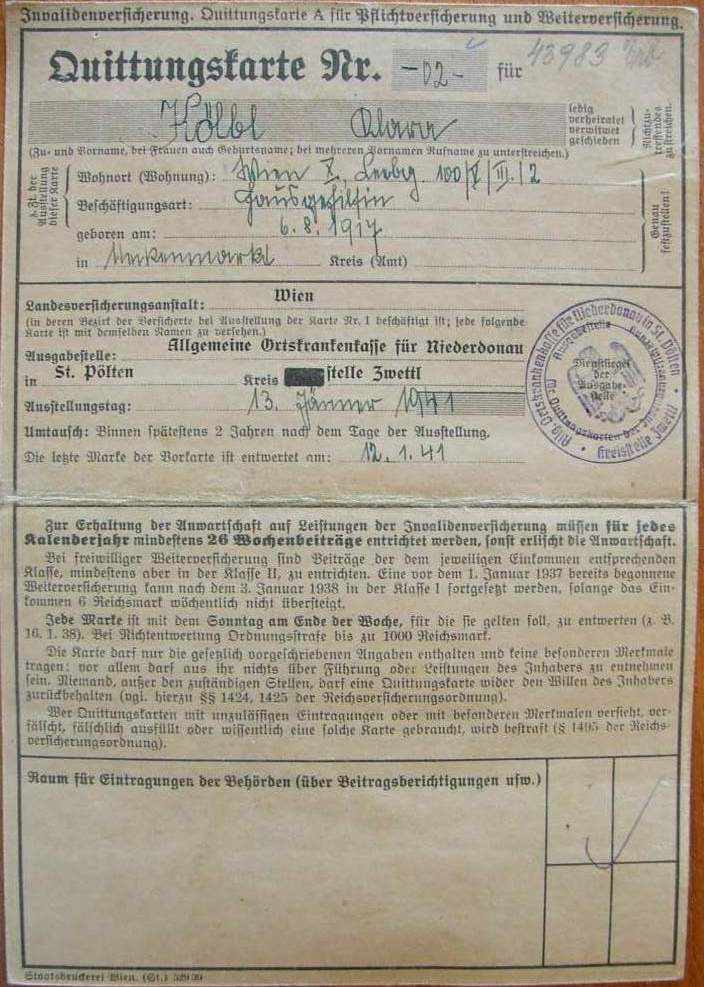 Invalidenversicherung. Quittungskarte A für Pflichtversicherung und Weiterversicherung.
Quittungskarte Nr. -02- für 43983
Kölbl Klara
ledig
verheiratet
verwitwet
geschieden
Nichtzu-
treffendes
zu streichen.
(Zu- und Vorname, bei Frauen auch Geburtsname; bei mehreren Vornamen Rufname zu unterstreichen.)
z. Zt. der
Ausstellung
dieser Karte
Wohnort (Wohnung): Wien X. 100/V/III./2
Beschäftigungsart: Hausgehilfin
geboren am: 6. 8. 1917
in Neckenmarkt Kreis (Amt)
Genau
festzustellen!
Landesversicherungsanstalt: Wien
(in deren Bezirk der Versicherte bei Ausstellung der Karte Nr. 1 beschäftigt ist; jede folgende
Karte ist mit demselben Namen zu versehen.)
Ausgabestelle: Allgemeine Ortskrankenkasse für Niederdonau
in St. Pölten Kreis stelle Zwettl
Ausstellungstag: 13. Jänner 1941
Umtausch: Binnen spätestens 2 Jahren nach dem Tage der Ausstellung.
Die letzte Marke der Vorkarte ist entwertet am: 12. 1. 41
Allg. Ortskrankenkasse für Niederdonau in St. Pölten
Kreisstelle Zwettl
Ausgabestelle
Quittungskarten der
Dienstsiegel
der
Ausgabe-
stelle
Zur Erhaltung der Anwartschaft auf Leistungen der Invalidenversicherung müssen für jedes
Kalenderjahr mindestens 26 Wochenbeiträge entrichtet werden, sonst erlischt die Anwartschaft.
Bei freiwilliger Weiterversicherung sind Beiträge der dem jeweiligen Einkommen entsprechenden
Klasse, mindestens aber in der Klasse II, zu entrichten. Eine vor dem 1. Januar 1937 bereits begonnene
Weiterversicherung kann nach dem 3. Januar 1938 in der Klasse I fortgesetzt werden, solange das Ein-
kommen 6 Reichsmark wöchentlich nicht übersteigt.
Jede Marke ist mit dem Sonntag am Ende der Woche, für die sie gelten soll, zu entwerten (z. B.
16. 1. 38). Bei Nichtentwertung Ordnungsstrafe bis zu 1000 Reichsmark.
Die Karte darf nur die gesetzlich vorgeschriebenen Angaben enthalten und keine besonderen Merkmale
tragen: vor allem darf aus ihr nichts über Führung oder Leistungen des Inhabers zu entnehmen
sein. Niemand, außer den zuständigen Stellen, darf eine Quittungskarte wider den Willen des Inhabers
zurückbehalten (vgl. hierzu §§ 1424, 1425 der Reichsversicherungsordnung).
Wer Quittungskarten mit unzulässigen Eintragungen oder mit besonderen Merkmalen versieht, ver-
fälscht, fälschlich ausfüllt oder wissentlich eine solche Karte gebraucht, wird bestraft (§ 1495 der Reichs-
versicherungsordnung).
Raum für Eintragungen der Behörden (über Beitragsberichtigungen usw.)
Staatsdruckerei Wien. (St.) 539 39